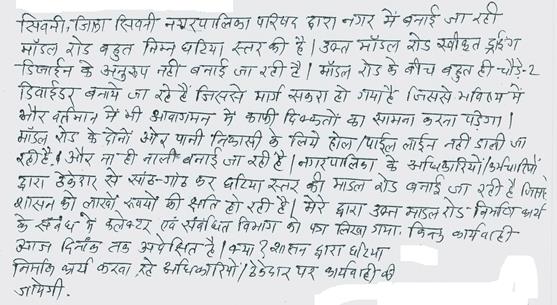 सिवनी, जिला सिवनी नगरपालिका परिषद द्वारा नगर में बनाई जा रही
मॉडल रोड बहुत निम्न घटिया स्तर की है। उक्त मॉडल रोड स्वीकृत ड्राईंग
डिजाईन के अनुरूप नहीं बनाई जा रही है। मॉडल रोड के बीच बहुत ही चौड़े-2
डिवाईडर बनाये जा रहे हैं जिससे मार्ग सकरा हो गया है जिससे भविष्य में
और वर्तमान में भी आवागमन में काफी दिक्कतों का सामना करना पड़ेगा।
मॉडल रोड के दोनों और पानी निकासी के लिये होल/पाईप लाईन नहीं डाली जा
रही है। और ना ही नाली बनाई जा रही है। नगरपालिका के अधिकारियों/कर्मचारियों
द्वारा ठेकेदार से सांठ-गांठ कर घटिया स्तर की माडल रोड बनाई जा रही है जिससे
शासन को लाखों रुपयों की क्षति हो रही है। मेरे द्वारा उक्त माडल रोड निर्माण कार्य
के संबंध में कलेक्टर एवं संबंधित विभाग को पत्र लिखा गया. किन्तु कार्यवाही
आज दिनांक तक अपेक्षित है। क्या? शासन द्वारा घटिया
निर्माण कार्य करवा रहे अधिकारियों/ठेकेदार पर कार्यवाही की
जायेगी.